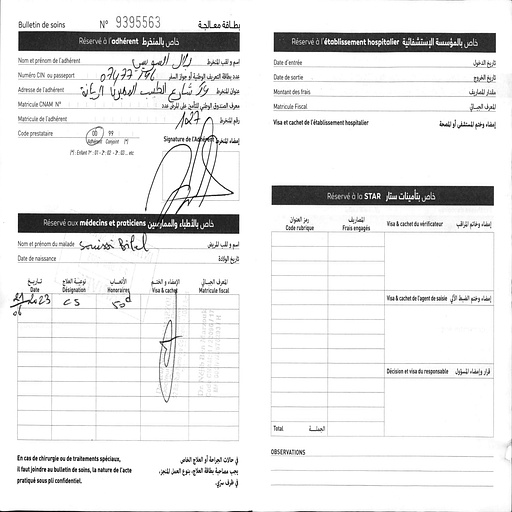 Bulletin de soins N° 9395563 بطاقة معالجة
Réservé à l'adhérent خاص بالمنخرط
Nom et prénom de l'adhérent اسم و لقب المنخرط
Numéro CIN ou passeport عدد بطاقة التعريف الوطنية أو جواز السفر
Adresse de l'adhérent شارع الطبيب عنوان المنخرط
Matricule CNAM N° معرف الصندوق الوطني للتأمين على المرض عدد
Matricule de l'adhérent 127 رقم المنخرط
Code prestataire 00 99 Signature de l'Adhérent إمضاء المنخرط
Adhérent Conjoint (*)
(*) : Enfant 1er : 01 - 2 : 02 - 3 : 03 .. etc
Réservé aux médecins et praticiens خاص بالأطباء والممارسين
Nom et prénom du malade Souissi Bilel اسم و لقب المريض
Date de naissance تاريخ الولادة
تاريخ نوعية العلاج الأتعاب الإمضاء و الختم المعرف الجبائي
Date Désignation Honoraires Visa & cachet Matricule fiscal
21/06 2023 CS 50d
En cas de chirurgie ou de traitements spéciaux,
il faut joindre au bulletin de soins, la nature de l'acte
pratiqué sous pli confidentiel.
في حالات الجراحة أو العلاج الخاص
يجب مصاحبة بطاقة العلاج، بنوع العمل المنجز،
في ظرف سري.
Réservé à l'établissement hospitalier خاص بالمؤسسة الإستشفائية
Date d'entrée تاريخ الدخول
Date de sortie تاريخ الخروج
Montant des frais مقدار المصاريف
Matricule Fiscal المعرف الجبائي
Visa et cachet de l'établissement hospitalier إمضاء وختم المستشفى أو المصحة
Réservé à la STAR خاص بتأمينات ستار
رمز العنوان المصاريف
Code rubrique Frais engagés Visa & cachet du vérificateur إمضاء وخاتم المراقب
Visa & cachet de l'agent de saisie إمضاء وختم الضبط الآلي
Décision et visa du responsable قرار وإمضاء المسؤول
Total الجملة
OBSERVATIONS